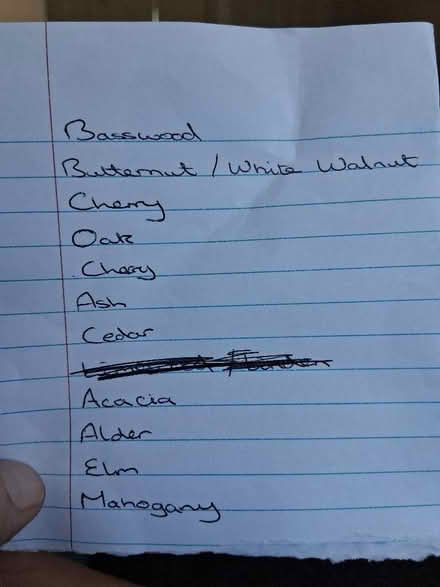 Basswood
Butternut / White Walnut
Cherry
Oak
Cherry
Ash
Cedar
Acacia
Alder
Elm
Mahogany